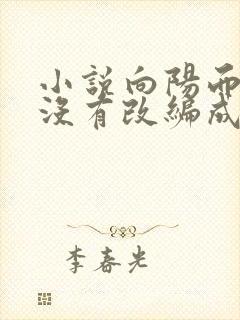 小說向陽而
沒有改編成
李春光